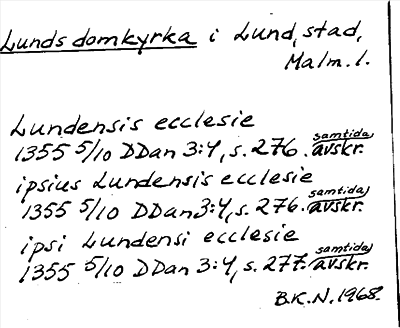 Lunds domkyrka i Lund, stad,
Malm. l.
Lundensis ecclesie
1355 5/10 DDan 3:4, s. 276. samtida avskr.
ipsius Lundensis ecclesie
1355 5/10 DDan 3:4, s. 276. samtida avskr.
ipsi Lundensi ecclesie
1355 5/10 DDan 3:4, s. 277. samtida avskr.
B.K.N. 1968.